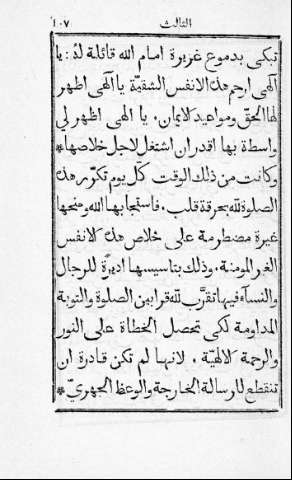 الثالث ١٠٧
تبكى بدموع غزيرة امام الله قائلة لهُ: يا
آلهى ارحم هذه الانفس الشقيّة يا آلهى اظهر
لها الحقّ ومواعيد لايمان. يا الهى اظهر لي
واسطة بها اقدر ان اشتغل لاجل خلاصها *
وكانت من ذلك الوقت كلّ يوم تكرّر هذه
الصلوة لله بحرقة قلب. فاستجابها الله ومنحها
غيرة مضطرمة على خلاص هذه لانفس
الغير المومنة. وذلك بتاسيسها اديرةً للرجال
والنسآء فيها تقرّب لله قرابين الصلوة والتوبة
المداومة لكى تحصل الخطاة على النور
والرحمة لالهيّة. لانها لم تكن قادرة ان
تنقطع للرسالة الخارجة والوعظ الجهريّ *